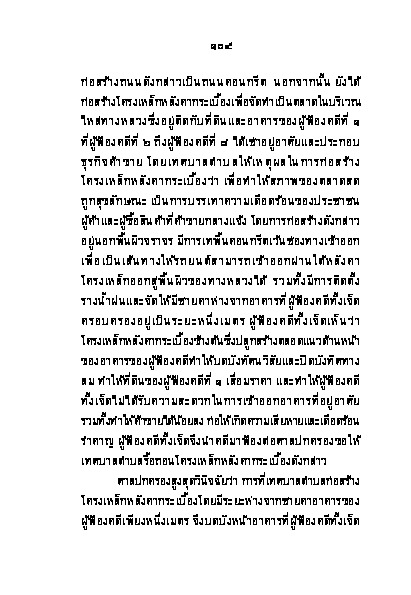 ๑๐๙
ก่อสร้างถนนดังกล่าวเป็นถนนคอนกรีต นอกจากนั้น ยังได้
ก่อสร้างโครงเหล็กหลังคากระเบื้องเพื่อจัดทำเป็นตลาดในบริเวณ
ไหล่ทางหลวงซึ่งอยู่ติดกับที่ดินและอาคารของผู้ฟ้องคดีที่ ๑
ที่ผู้ฟ้องคดีที่ ๒ ถึงผู้ฟ้องคดีที่ ๗ ใช้เช่าอยู่อาศัยและประกอบ
ธุรกิจค้าขาย โดยเทศบาลตำบลให้เหตุผลในการก่อสร้าง
โครงเหล็กหลังคากระเบื้องว่า เพื่อทำให้สภาพของตลาดสด
ถูกสุขลักษณะ เป็นการบรรเทาความเดือดร้อนของประชาชน
ผู้ค้าและผู้ซื้อสินค้าที่ค้าขายกลางแจ้ง โดยการก่อสร้างดังกล่าว
อยู่นอกพื้นผิวจราจร มีการเทพื้นคอนกรีตเว้นช่องทางเข้าออก
เพื่อเป็นเส้นทางให้รถยนต์สามารถเข้าออกผ่านใต้หลังคา
โครงเหล็กออกสู่พื้นผิวของทางหลวงได้ รวมทั้งมีการติดตั้ง
รางน้ำฝนและจัดให้มีชายคาห่างจากอาคารที่ผู้ฟ้องคดีทั้งเจ็ด
ครอบครองอยู่เป็นระยะหนึ่งเมตร ผู้ฟ้องคดีทั้งเจ็ดเห็นว่า
โครงเหล็กหลังคากระเบื้องข้างต้นซึ่งปลูกสร้างตลอดแนวด้านหน้า
ของอาคารของผู้ฟ้องคดีทำให้บดบังทัศนวิสัยและปิดบังทิศทาง
ลม ทำให้ที่ดินของผู้ฟ้องคดีที่ ๑ เสื่อมราคา และทำให้ผู้ฟ้องคดี
ทั้งเจ็ดไม่ได้รับความสะดวกในการเข้าออกอาคารที่อยู่อาศัย
รวมทั้งทำให้ค้าขายได้น้อยลง ก่อให้เกิดความเสียหายและเดือดร้อน
รำคาญ ผู้ฟ้องคดีทั้งเจ็ดจึงนำคดีมาฟ้องต่อศาลปกครองขอให้
เทศบาลตำบลรื้อถอนโครงเหล็กหลังคากระเบื้องดังกล่าว
ศาลปกครองสูงสุดวินิจฉัยว่า การที่เทศบาลตำบลก่อสร้าง
โครงเหล็กหลังคากระเบื้องโดยมีระยะห่างจากชายคาอาคารของ
ผู้ฟ้องคดีเพียงหนึ่งเมตร จึงบดบังหน้าอาคารที่ผู้ฟ้องคดีทั้งเจ็ด